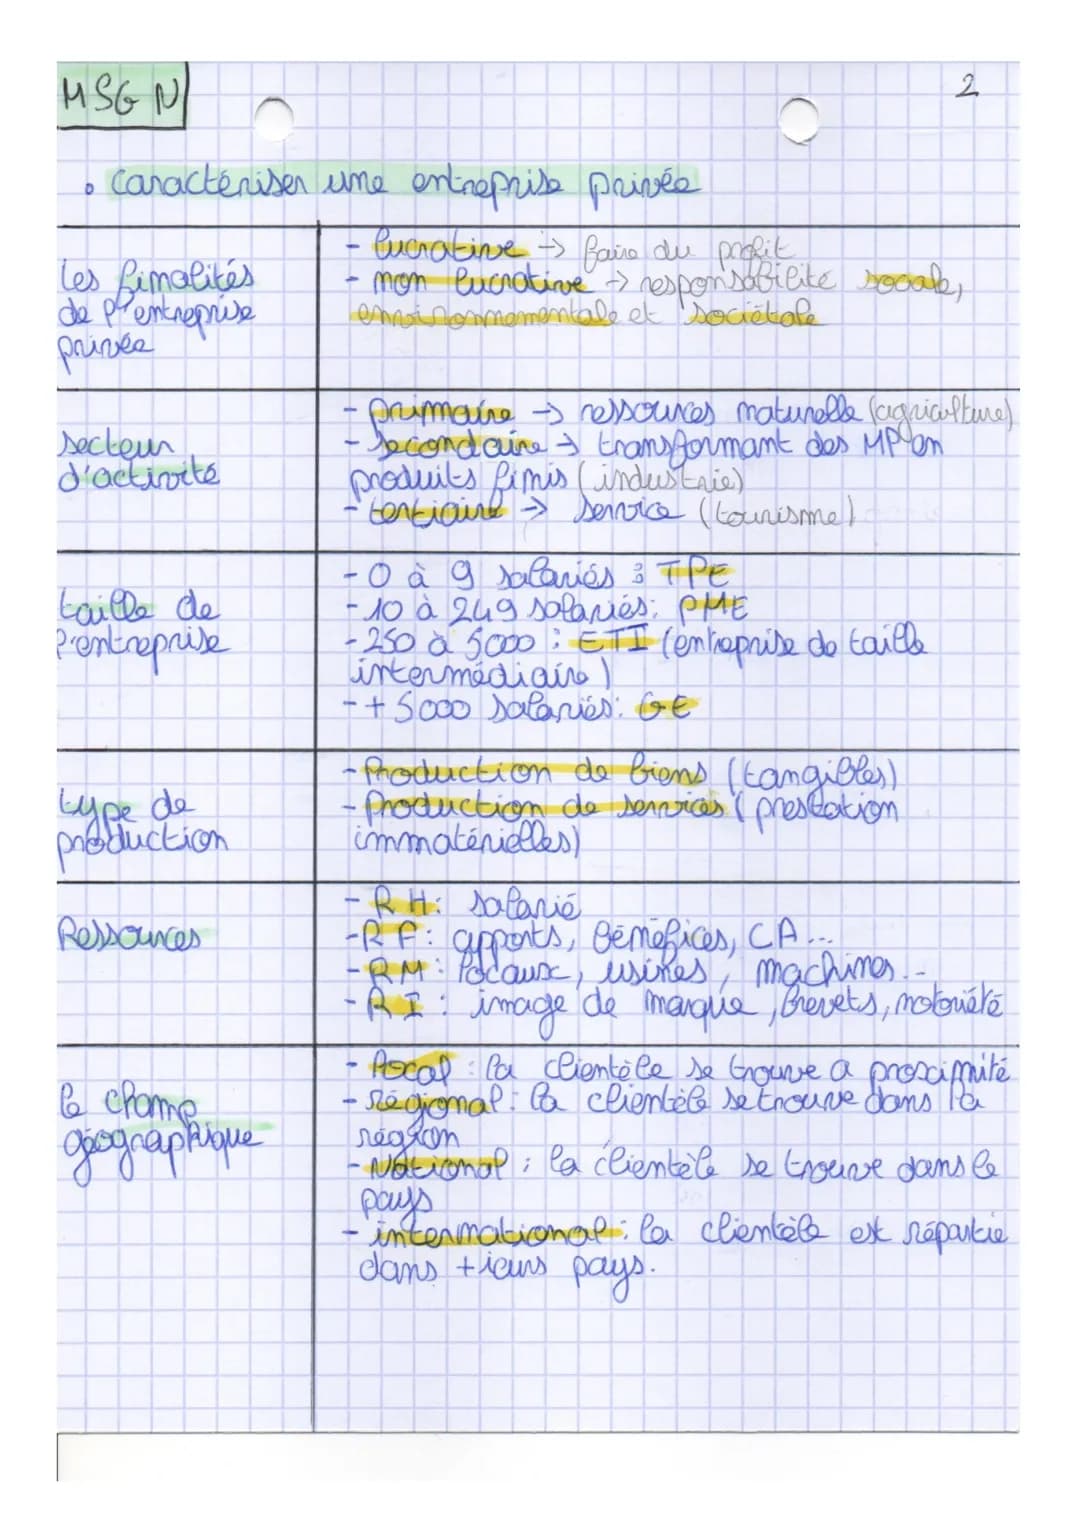 MSG N
2
• caractériser une entreprise privée
les finalités
de l'entreprise
privée
- lucrative → faire du profit
- non lucrative → responsabilité socale,
environnementale et sociétale
secteur
d'activité
- primaire → ressources naturelle (agriculture)
- secondaire → transformant des MP en
produits finis (industrie)
- tertiaire → service (tourisme)
taille de
l'entreprise
- 0 à 9 salariés : TPE
- 10 à 249 salariés: PME
- 250 à 5000 : ETI (entreprise de taille
intermédiaire)
- + 5000 salariés: GE
type de
production
- Production de biens (tangibles)
- Production de services (prestation
immatérielles)
Ressources
- RH: salarié
- RF: apports, bénéfices, CA...
- RM: locaux, usines, machines...
- RI: image de marque, brevets, notoriété
le champ
géographique
- local : la clientèle se trouve a proximité
- régional: la clientèle se trouve dans la
région
- National : la clientèle se trouve dans le
pays
- international : la clientèle est répartie
dans +ieurs pays.